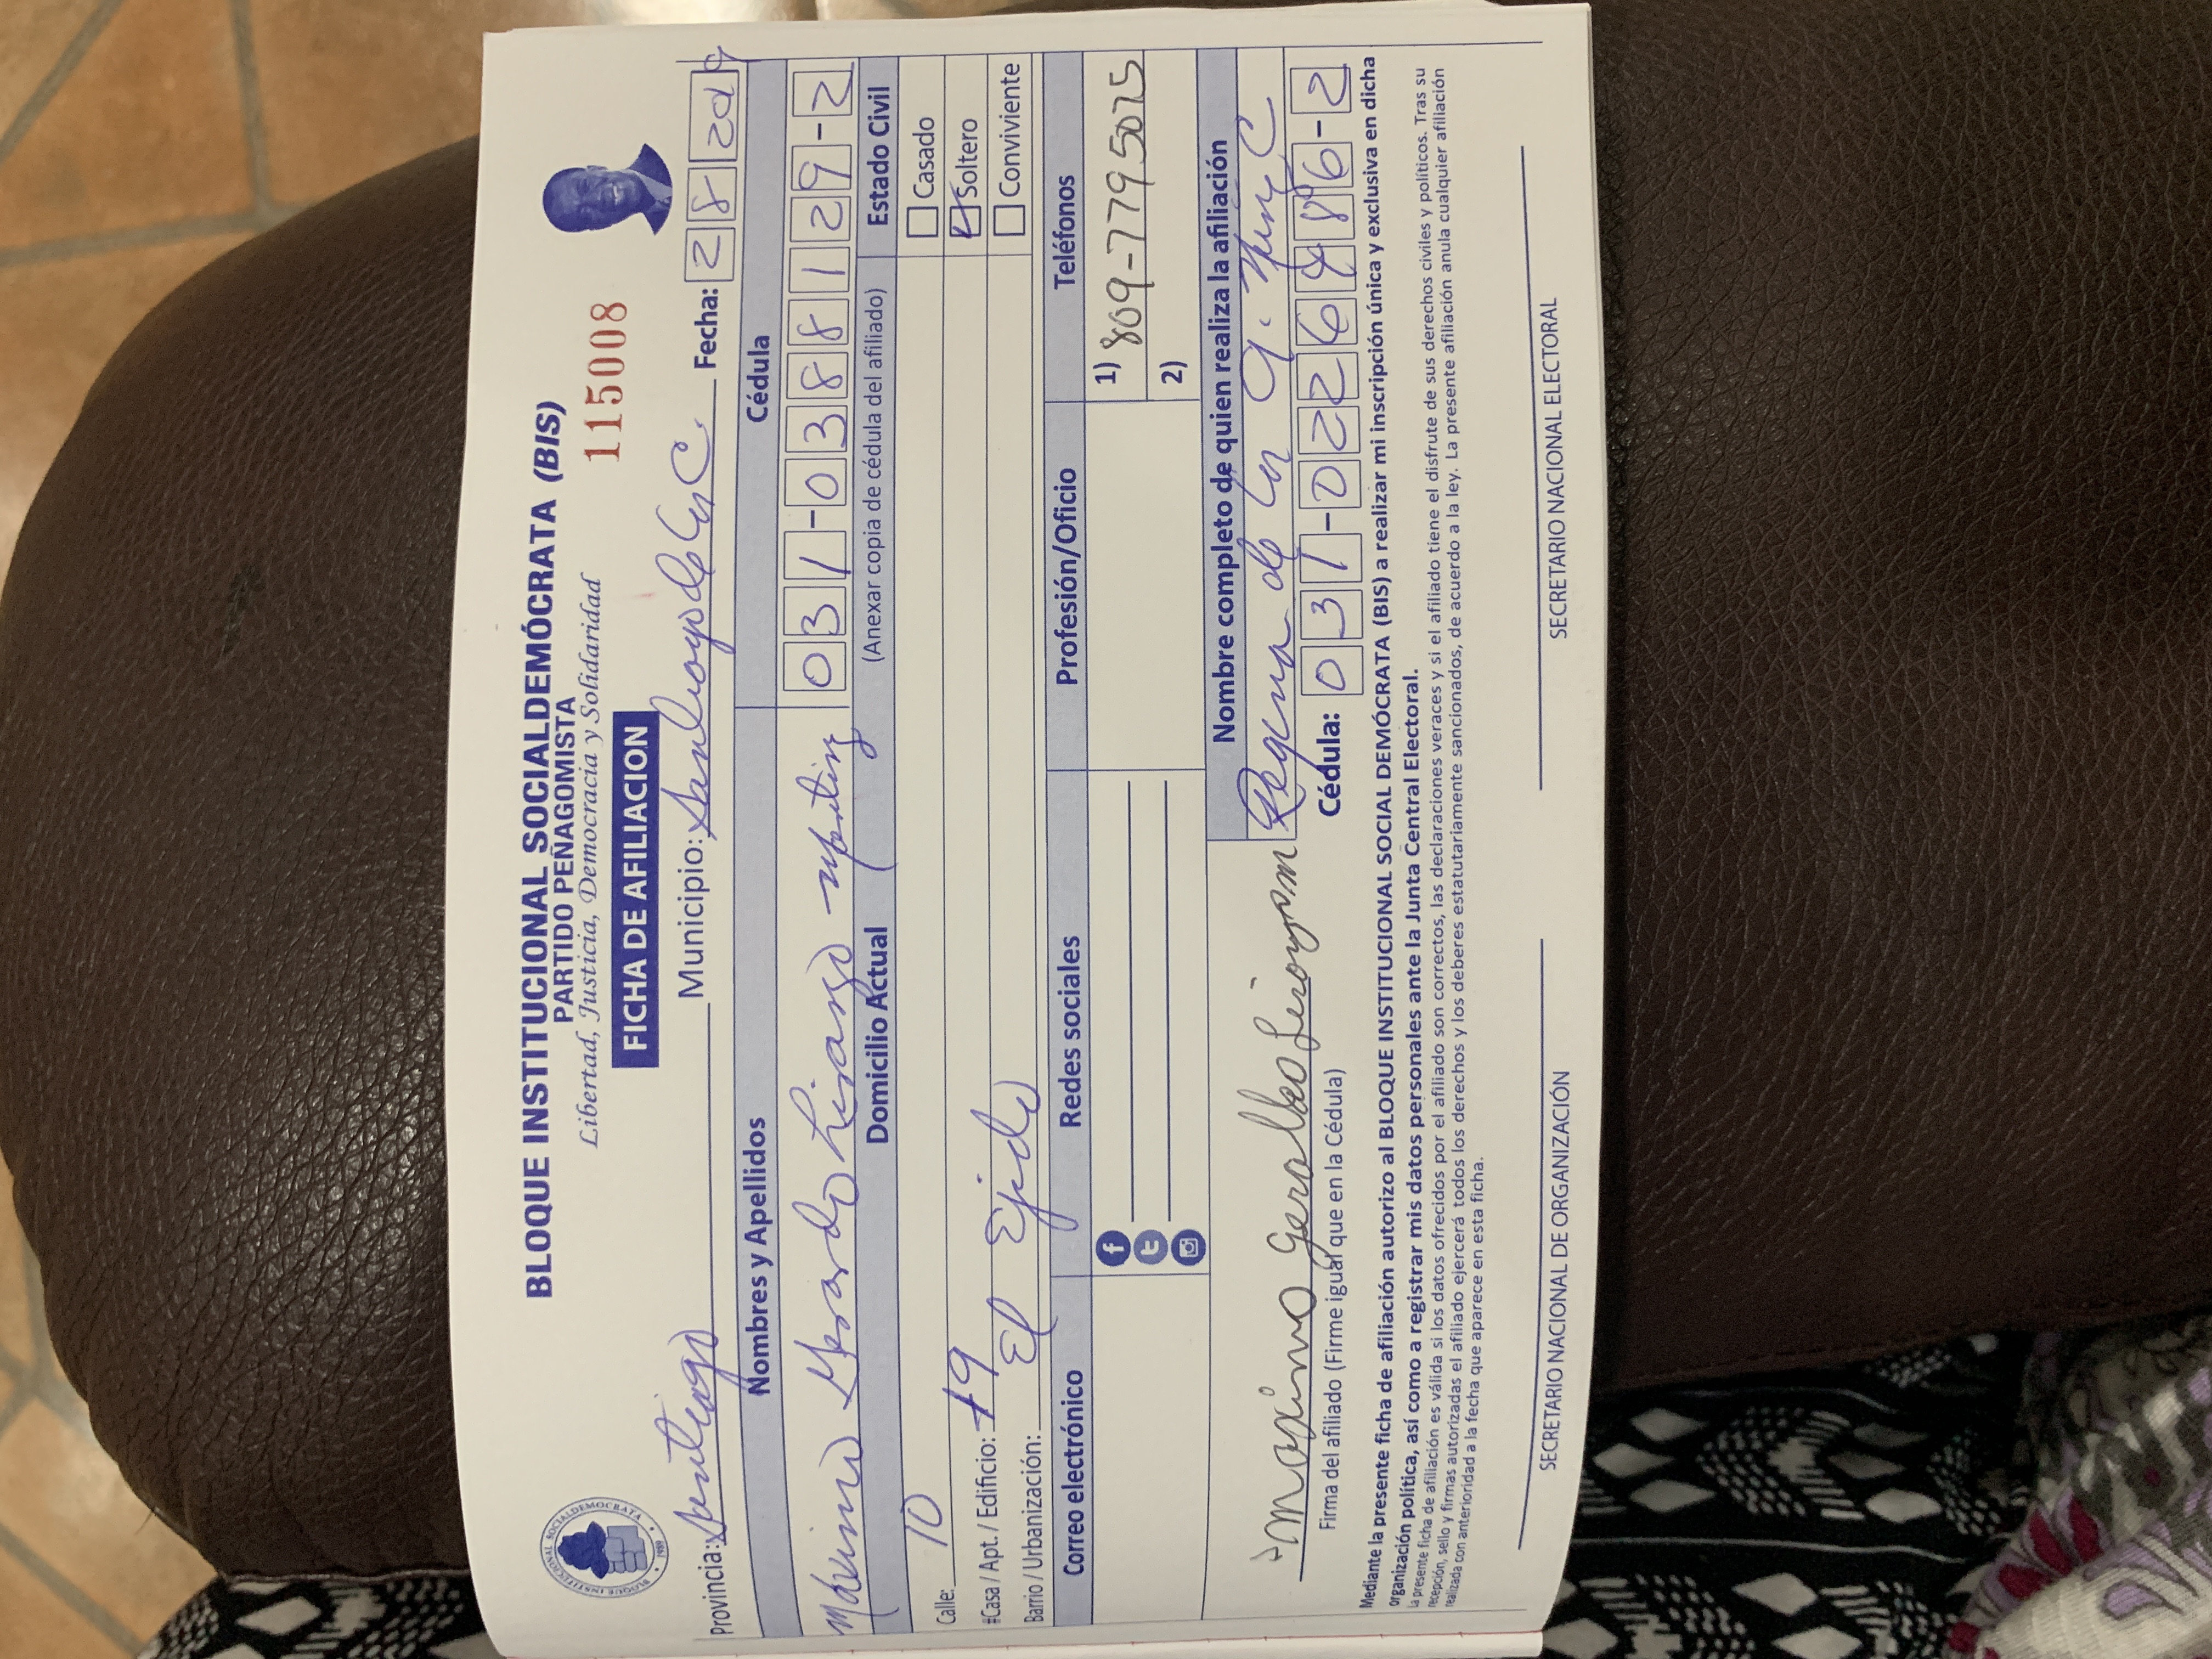 BLOQUE INSTITUCIONAL SOCIALDEMÓCRATA (BIS)
PARTIDO PEÑAGOMISTA
Libertad, Justicia, Democracia y Solidaridad
115008
FICHA DE AFILIACION
BLOQUE INSTITUCIONAL SOCIALDEMOCRATA
1989
Provincia: Santiago Municipio: Santiago de los C. Fecha: 2 8 20
Nombres y Apellidos Cédula
Maximo Gerardo Liranzo Martinz 031-0388129-2
Domicilio Actual (Anexar copia de cédula del afiliado) Estado Civil
Calle: 10 Casado
#Casa / Apt. / Edificio: 19 Soltero
Barrio / Urbanización: El Ejido Conviviente
Correo electrónico Redes sociales Profesión/Oficio Teléfonos
1) 809-779 5075
2)
Nombre completo de quien realiza la afiliación
Maximo Geraldo Regina de los A.
Firma del afiliado (Firme igual que en la Cédula) Cédula: 031-0226486-2
Mediante la presente ficha de afiliación autorizo al BLOQUE INSTITUCIONAL SOCIAL DEMÓCRATA (BIS) a realizar mi inscripción única y exclusiva en dicha
organización política, así como a registrar mis datos personales ante la Junta Central Electoral.
La presente ficha de afiliación es válida si los datos ofrecidos por el afiliado son correctos, las declaraciones veraces y si el afiliado tiene el disfrute de sus derechos civiles y políticos. Tras su
recepción, sello y firmas autorizadas el afiliado ejercerá todos los derechos y los deberes estatutariamente sancionados, de acuerdo a la ley. La presente afiliación anula cualquier afiliación
realizada con anterioridad a la fecha que aparece en esta ficha.
SECRETARIO NACIONAL DE ORGANIZACIÓN SECRETARIO NACIONAL ELECTORAL